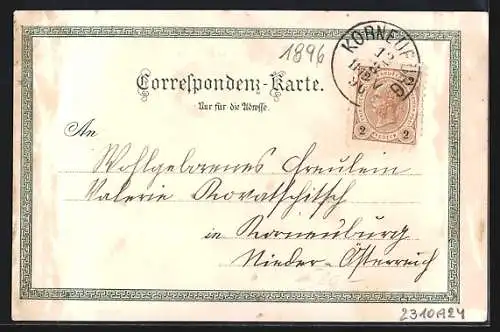 1896
KORNEUBURG
12
96
Correspondenz-Karte.
Nur für die Adresse.
2 2
An
Wohlgeborenes Freulein
Valerie Kovatschitsch
in Korneuburg
Nieder-Österreich
2310A24